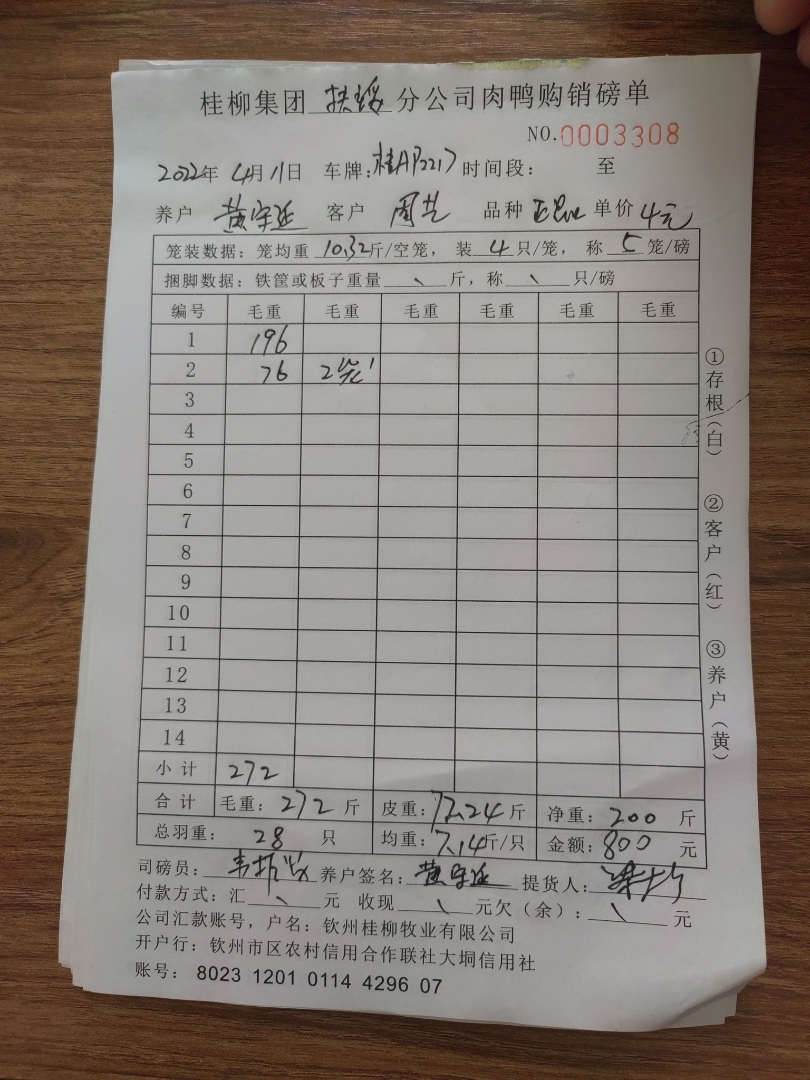 桂柳集团 扶绥 分公司肉鸭购销磅单
NO.0003308
2022年 4月11日 车牌:桂AP2217 时间段: 至
养户 黄守廷 客户 周艺 品种 单价 4元
笼装数据: 笼均重 10.32斤/空笼, 装 4 只/笼, 称 5 笼/磅
捆脚数据: 铁筐或板子重量 \ 斤, 称 \ 只/磅
编号 毛重 毛重 毛重 毛重 毛重 毛重
1 196
2 76 2笼
3
4
5
6
7
8
9
10
11
12
13
14
小计 272
合计 毛重: 272 斤 皮重: 72.24 斤 净重: 200 斤
总羽重: 28 只 均重: 7.14斤/只 金额: 800 元
司磅员: 养户签名: 黄守廷 提货人:
付款方式: 汇 \ 元 收现 \ 元欠(余): \ 元
公司汇款账号, 户名: 钦州桂柳牧业有限公司
开户行: 钦州市区农村信用合作联社大垌信用社
账号: 8023 1201 0114 4296 07
①存根(白) ②客户(红) ③养户(黄)